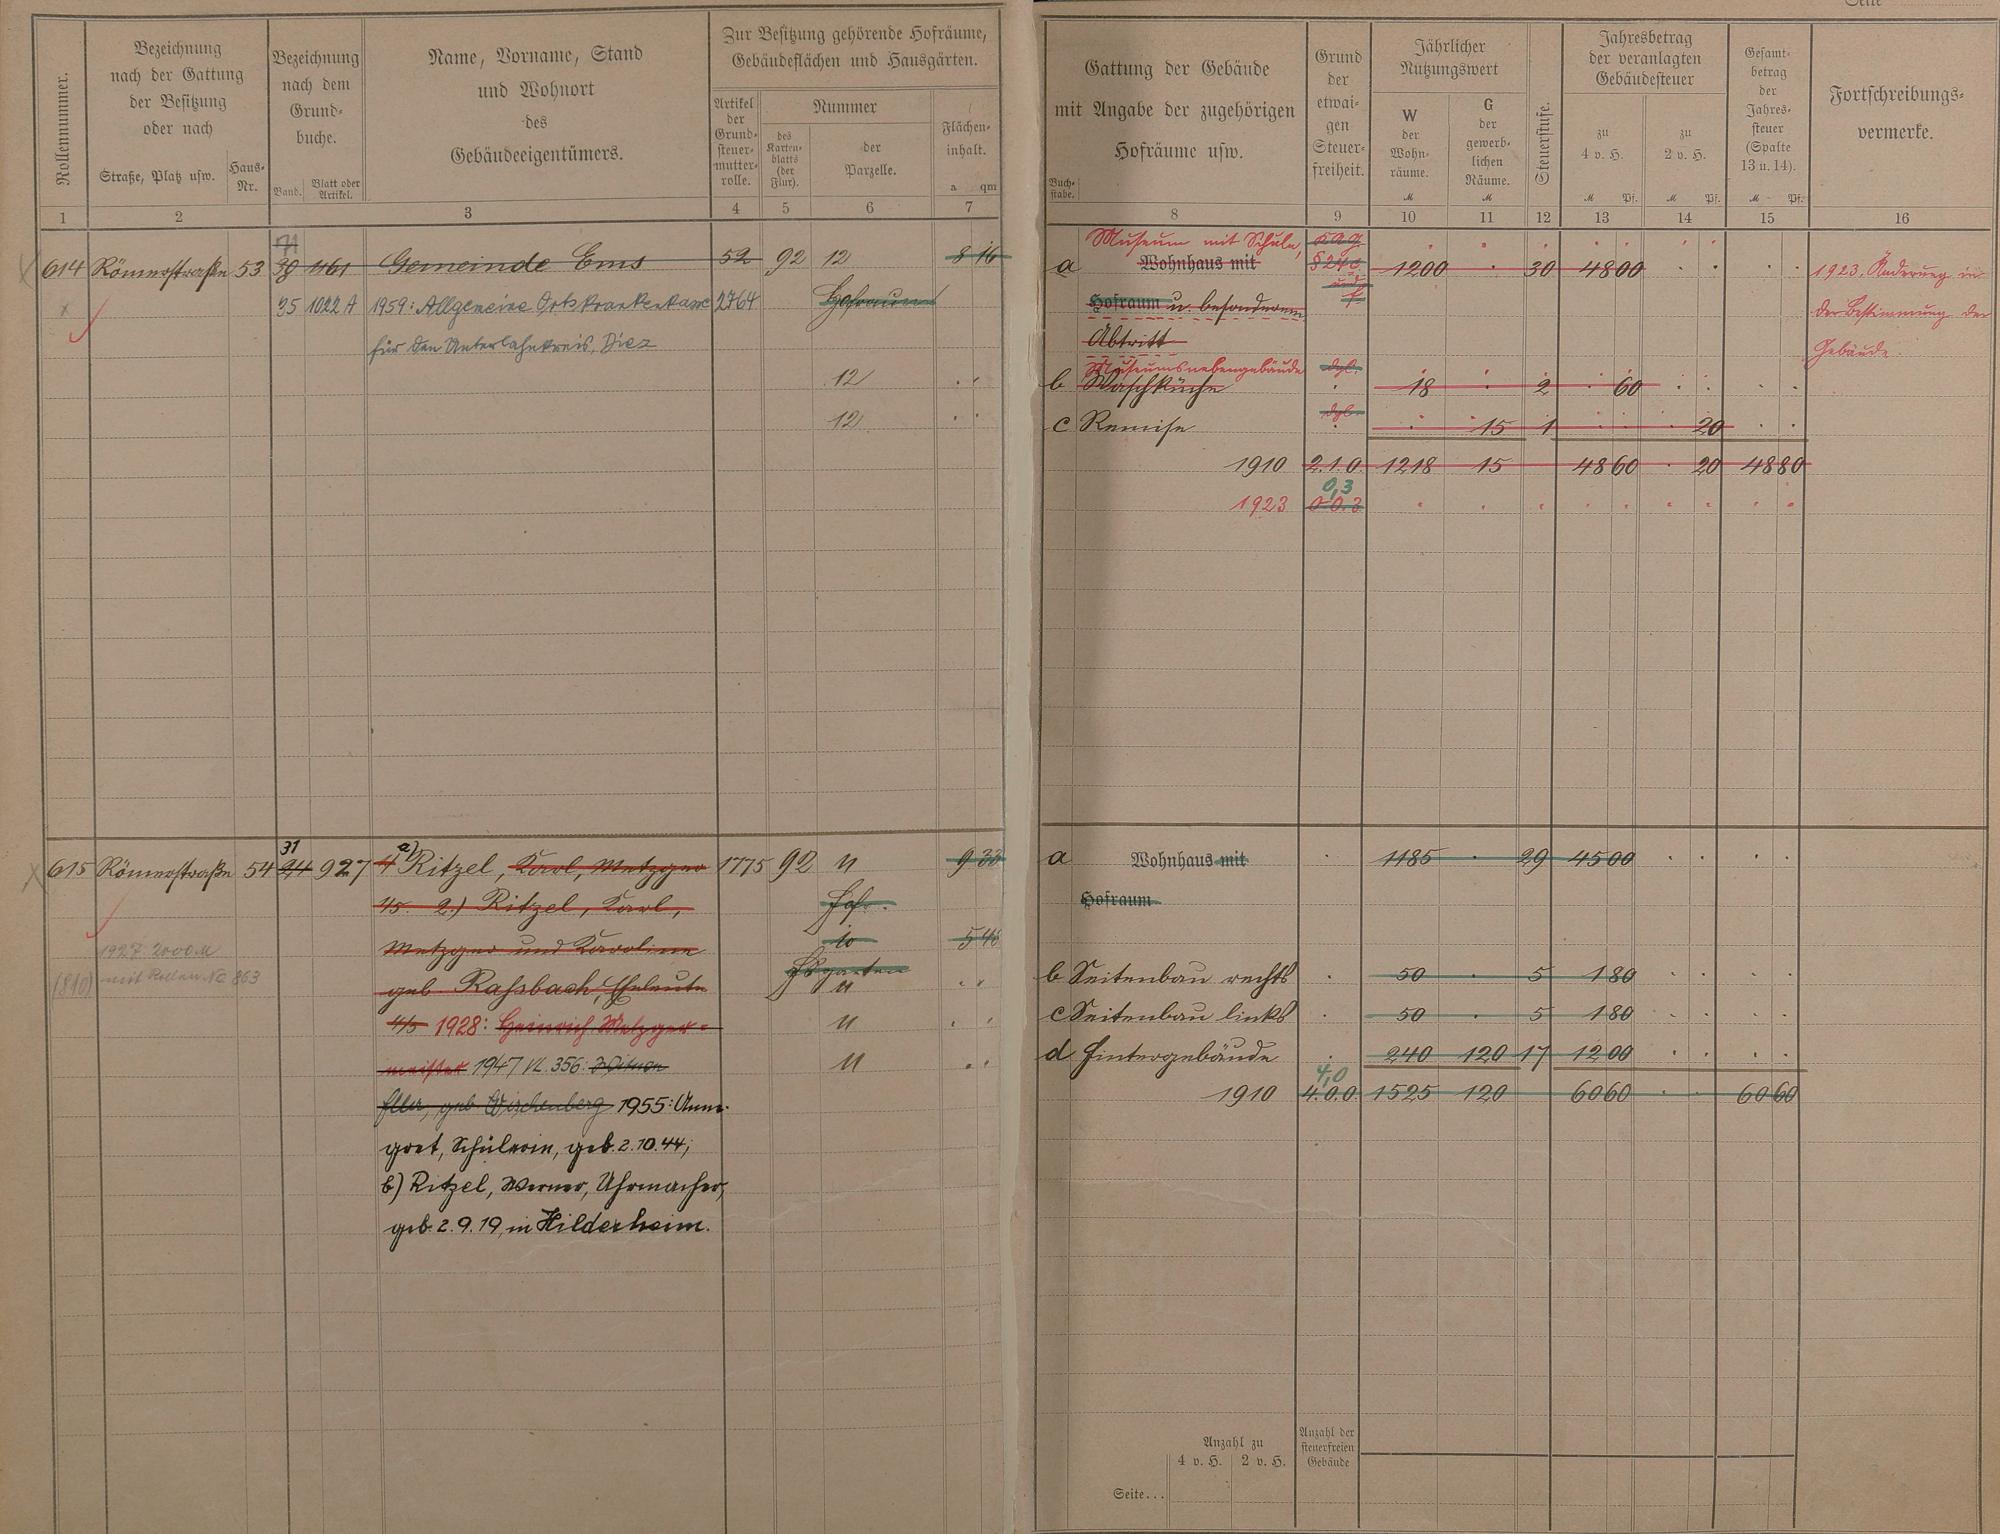 Seite
Rollennummer.
Bezeichnung
nach der Gattung
der Besitzung
oder nach
Straße, Platz usw.
Haus-
Nr.
Bezeichnung
nach dem
Grund-
buche.
Band.
Blatt oder
Artikel.
Name, Vorname, Stand
und Wohnort
des
Gebäudeeigentümers.
Zur Besitzung gehörende Hofräume,
Gebäudeflächen und Hausgärten.
Artikel
der
Grund-
steuer-
mutter-
rolle.
Nummer
des
Karten-
blatts
(der
Flur).
der
Parzelle.
Flächen-
inhalt.
a qm
1 2 3 4 5 6 7
614 Römerstraße 53 39 1161 Gemeinde Ems 52 92 12 8 16
35 1022 A 1959: Allgemeine Ortskrankenkasse 2764 Hofraum
für den Unterlahnkreis, Diez
12
12
615 Römerstraße 54 31 927 a) Ritzel, Karl, Metzger 1775 92 11 9 33
2.) Ritzel, Karl, Hof
Metzger und Karoline 10 5 46
geb. Raßbach, Eheleute Hsgarten 11
1928: Heinrich Metzger- 11
meister 1947 VL. 356: Witwe 11
geb. 1955: Anne-
gret, Schülerin, geb. 2.10.44;
b) Ritzel, Werner, Uhrmacher,
geb. 2.9.19, in Hildesheim.
1927: 2000 M
(810) mit Rollen No 863
Gattung der Gebäude
mit Angabe der zugehörigen
Hofräume usw.
Buch-
stabe.
Grund
der
etwai-
gen
Steuer-
freiheit.
Jährlicher
Nutzungswert
W
der
Wohn-
räume.
M
G
der
gewerb-
lichen
Räume.
M
Steuerstufe.
Jahresbetrag
der veranlagten
Gebäudesteuer
zu
4 v. H.
M Pf.
zu
2 v. H.
M Pf.
Gesamt-
betrag
der
Jahres-
steuer
(Spalte
13 u. 14).
M Pf.
Fortschreibungs-
vermerke.
8 9 10 11 12 13 14 15 16
Museum mit Schule,
a Wohnhaus mit § 24 c 1200 · 30 48 00 1923. Änderung in
Hofraum u. besonderem und f der Bestimmung der
Abtritt Gebäude.
Museumsnebengebäude dgl.
b Waschküche 18 · 2 · 60
c Remise dgl. · 15 1 20
1910 2.1.0. 1218 15 48 60 · 20 48 80
0,3
1923 0.0.3
a Wohnhaus mit 1185 · 29 45 00
Hofraum
b Seitenbau rechts 50 · 5 1 80
c Seitenbau links 50 · 5 1 80
d Hintergebäude 240 120 17 12 00
4,0
1910 4.0.0. 1525 120 60 60 60 60
Anzahl zu
4 v. H. 2 v. H.
Anzahl der
steuerfreien
Gebäude
Seite...